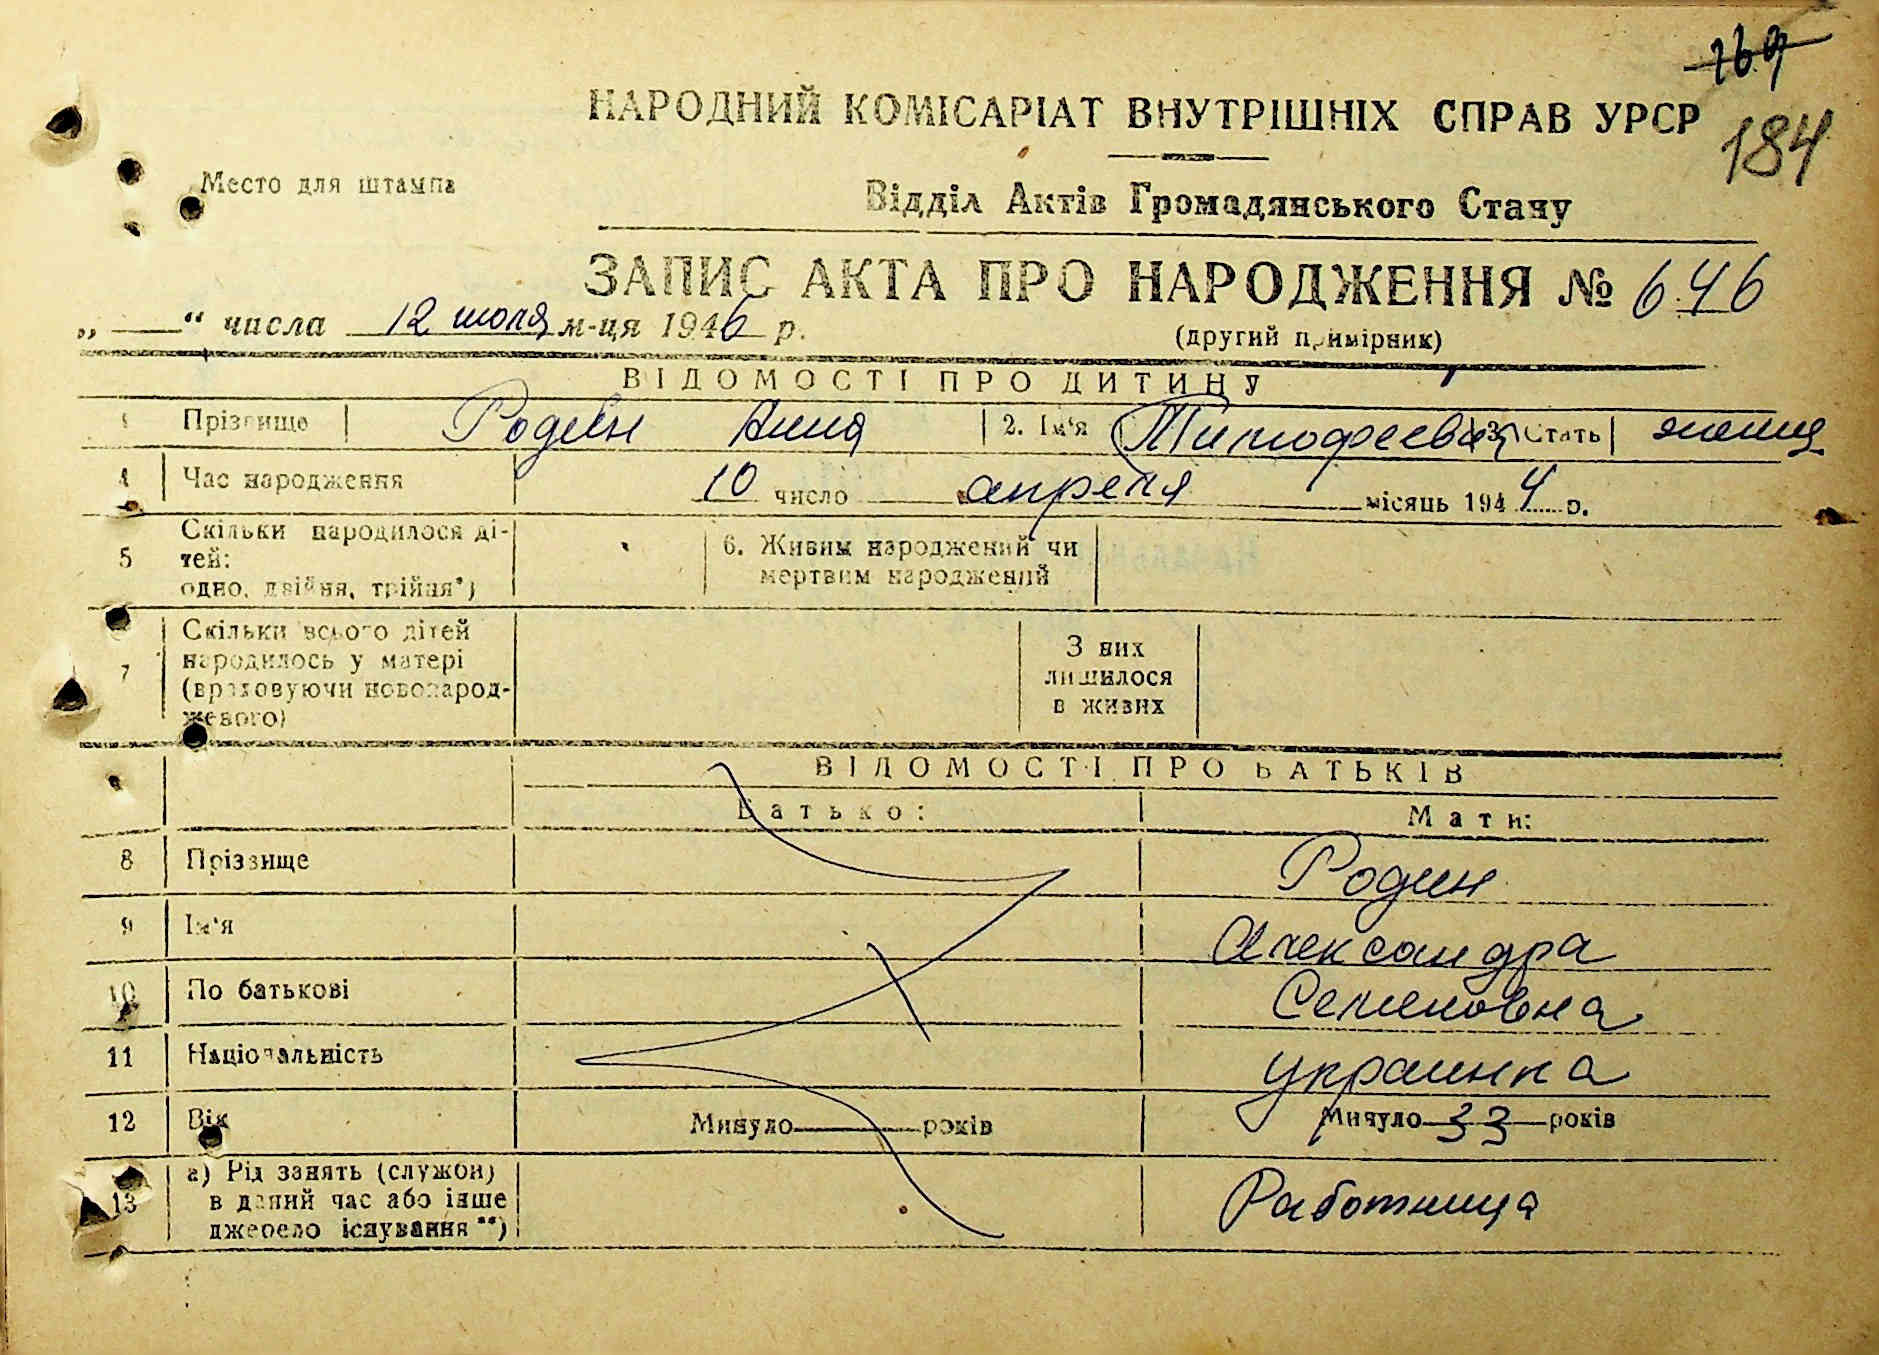 169
НАРОДНИЙ КОМІСАРІАТ ВНУТРІШНІХ СПРАВ УРСР
184
Место для штампа
Відділ Актів Громадянського Стану
ЗАПИС АКТА ПРО НАРОДЖЕННЯ № 646
„ — “ числа 12 июля м-ця 1946 р.
(другий примірник)
ВІДОМОСТІ ПРО ДИТИНУ
Прізвище Родин Анна 2. Ім'я Тимофеевна 3. Стать женщ
4 Час народження 10 число апреля місяць 1944 р.
5 Скільки народилося ді-
тей:
одно, двійня, трійня*)
6. Живим народжений чи
мертвим народжений
7 Скільки всього дітей
народилось у матері
(враховуючи новонарод-
женого)
З них
лишилося
в живих
ВІДОМОСТІ ПРО БАТЬКІВ
Батько: Мати:
8 Прізвище Родин
9 Ім'я Александра
10 По батькові Семеновна
11 Національність украинка
12 Вік Минуло — років Минуло 33 років
13 а) Рід занять (служби) Работница
в даний час або інше
джерело існування**)